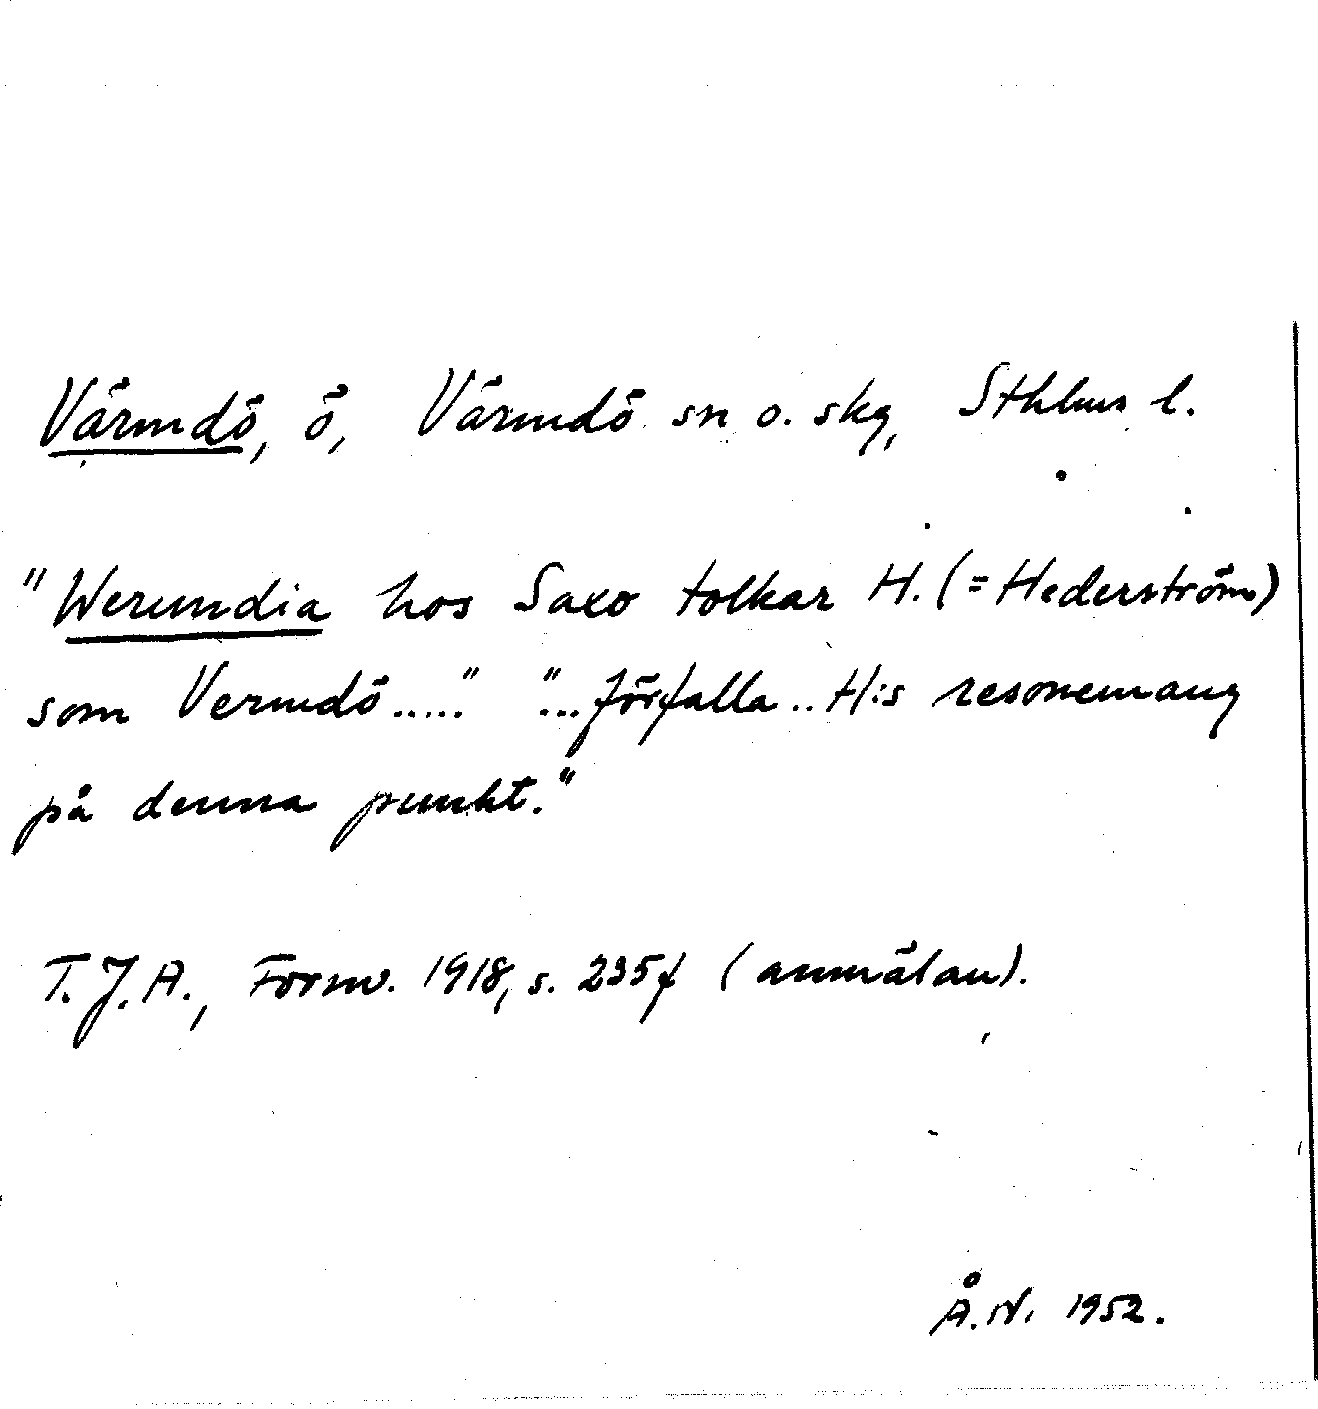 Värmdö, ö, Värmdö sn o. skg, Sthlms l.
"Werundia hos Saxo tolkar H. (= Hederström)
som Vermdö....." "...förfalla .. H:s resonemang
på denna punkt."
T.J.A., Fornv. 1918, s. 235f (anmälan).
Å.N. 1952.